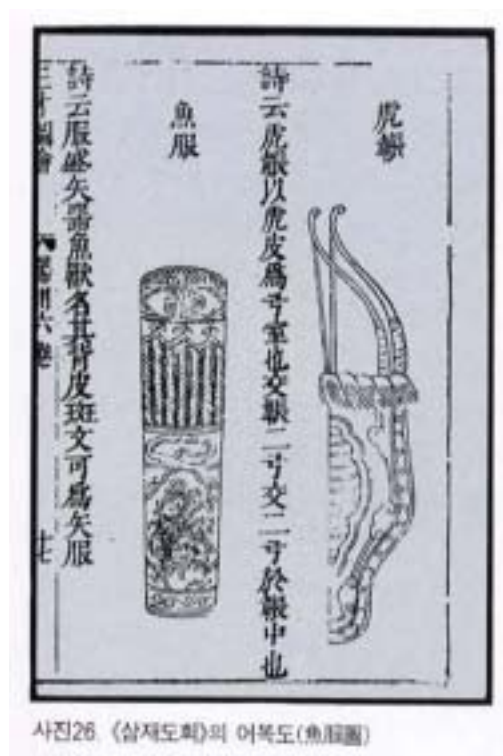 虎韔
詩云虎韔以虎皮為弓室也交韔二弓交二弓於韔中也
魚服
詩云服盛矢器魚獸名其背皮斑文可為矢服
三才圖會 器用六卷 十七
사진26. 《삼재도회》의 어복도(魚服圖)